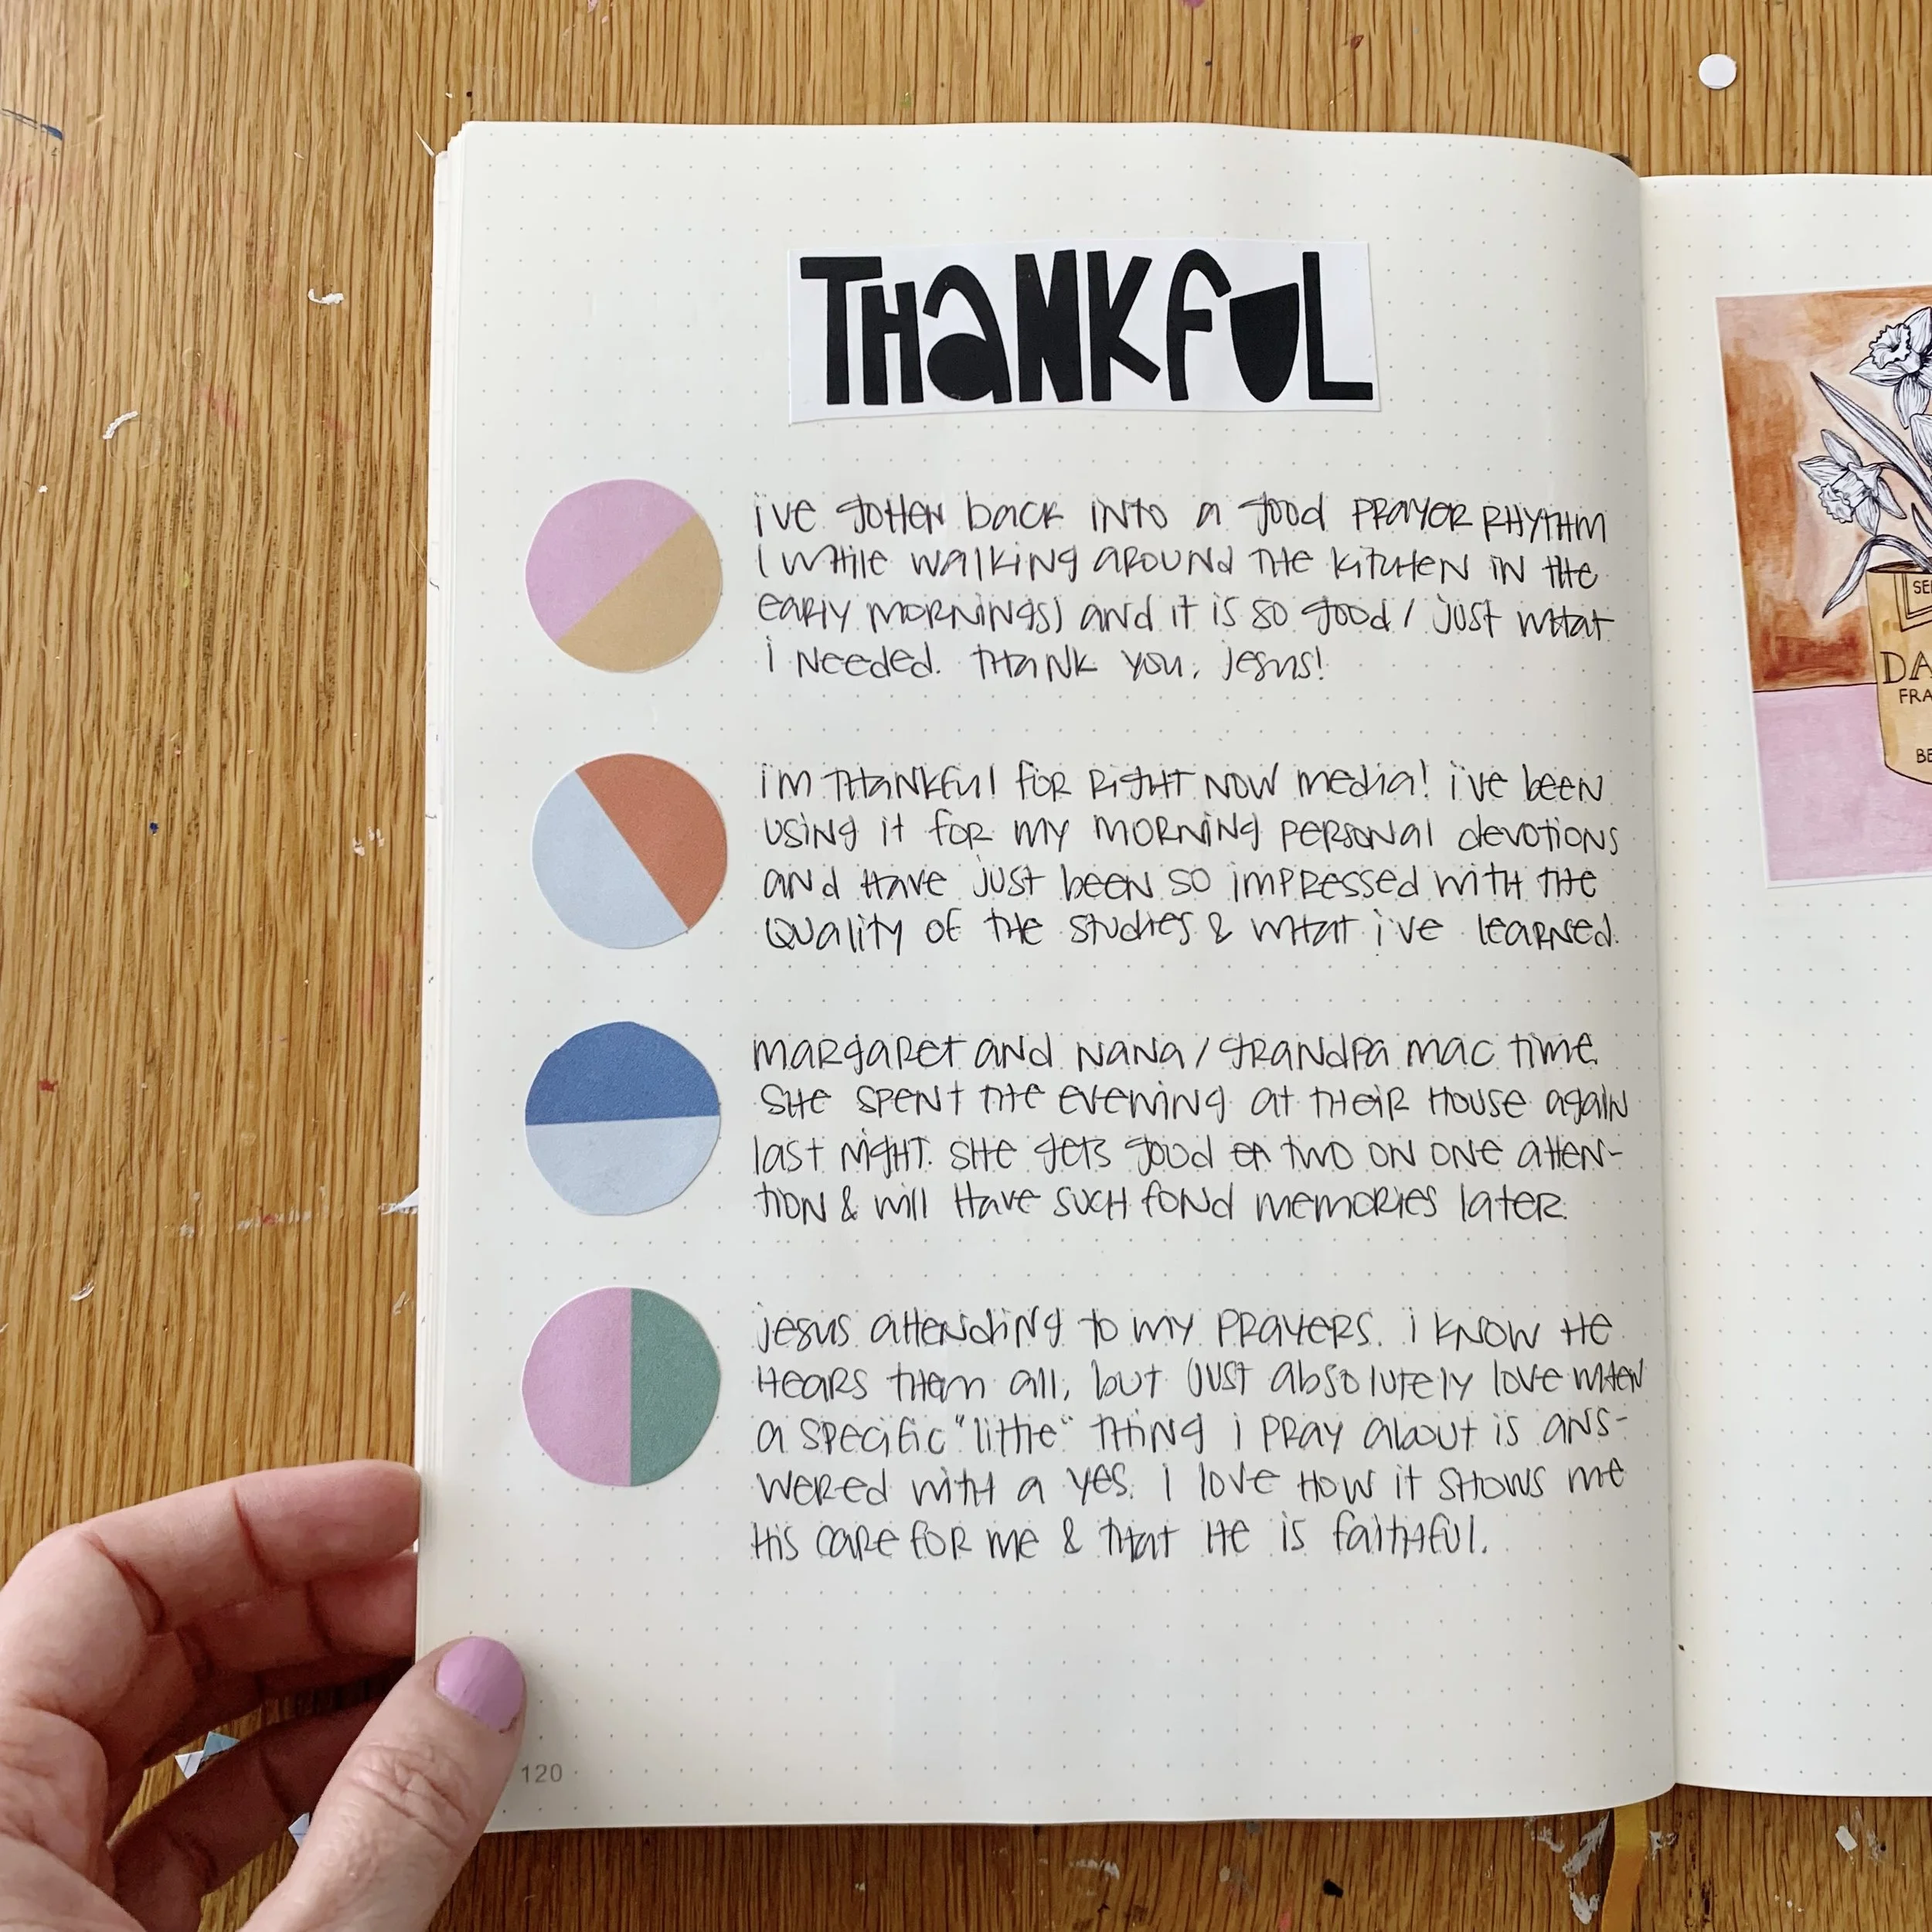 THaNKFUL
i've gotten back into a good prayer rhythm
(while walking around the kitchen in the
early mornings) and it is so good / just what
i needed. thank you, jesus!
i'm thankful for right now media! i've been
using it for my morning personal devotions
and have just been so impressed with the
quality of the studies & what i've learned.
margaret and nana / grandpa mac time.
she spent the evening at their house again
last night. she gets good two on one atten-
tion & will have such fond memories later.
jesus attending to my prayers. i know he
hears them all, but just absolutely love when
a specific "little" thing i pray about is ans-
wered with a yes. i love how it shows me
his care for me & that he is faithful.
120
SE
DA
FRA
BE